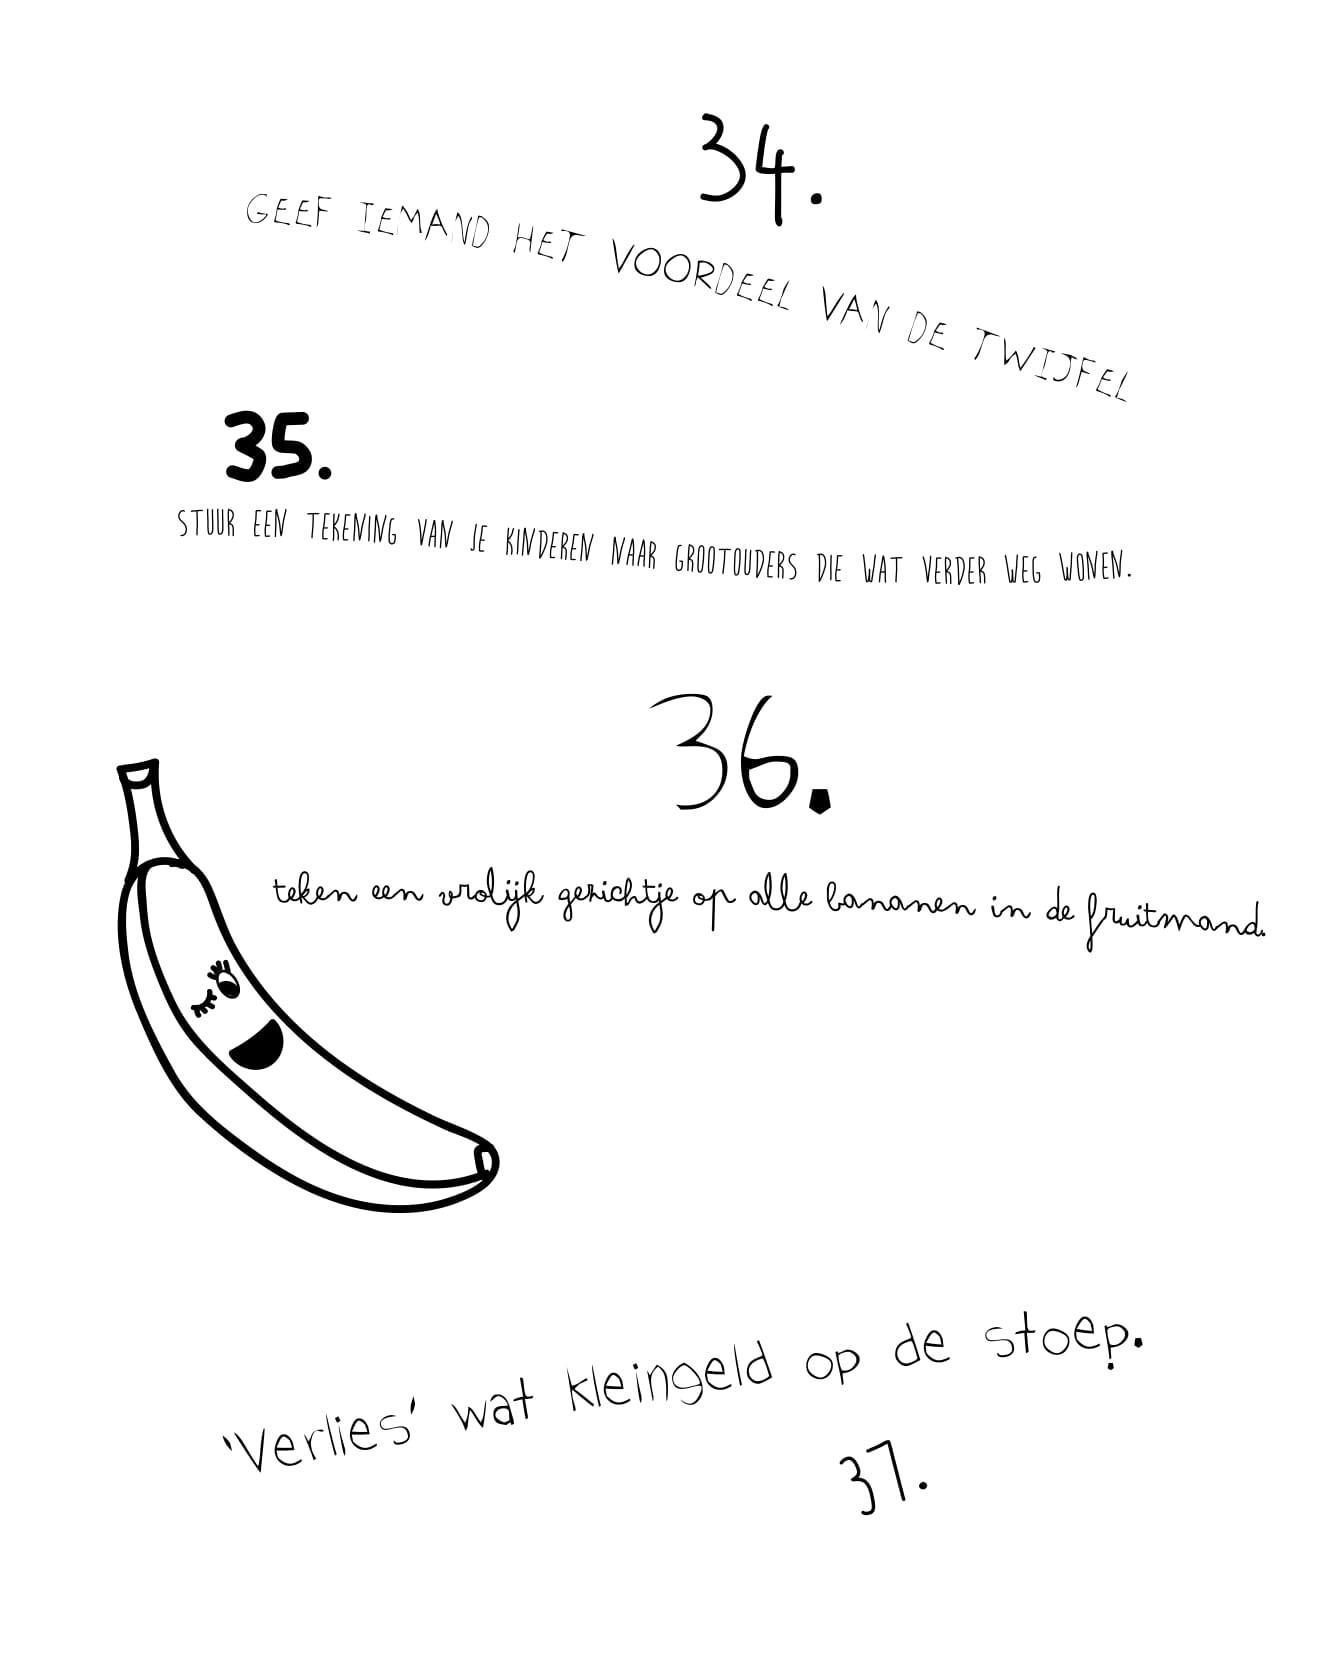 34.
GEEF IEMAND HET VOORDEEL VAN DE TWIJFEL
35.
STUUR EEN TEKENING VAN JE KINDEREN NAAR GROOTOUDERS DIE WAT VERDER WEG WONEN.
36.
teken een vrolijk gezichtje op alle bananen in de fruitmand.
'Verlies' wat kleingeld op de stoep.
37.